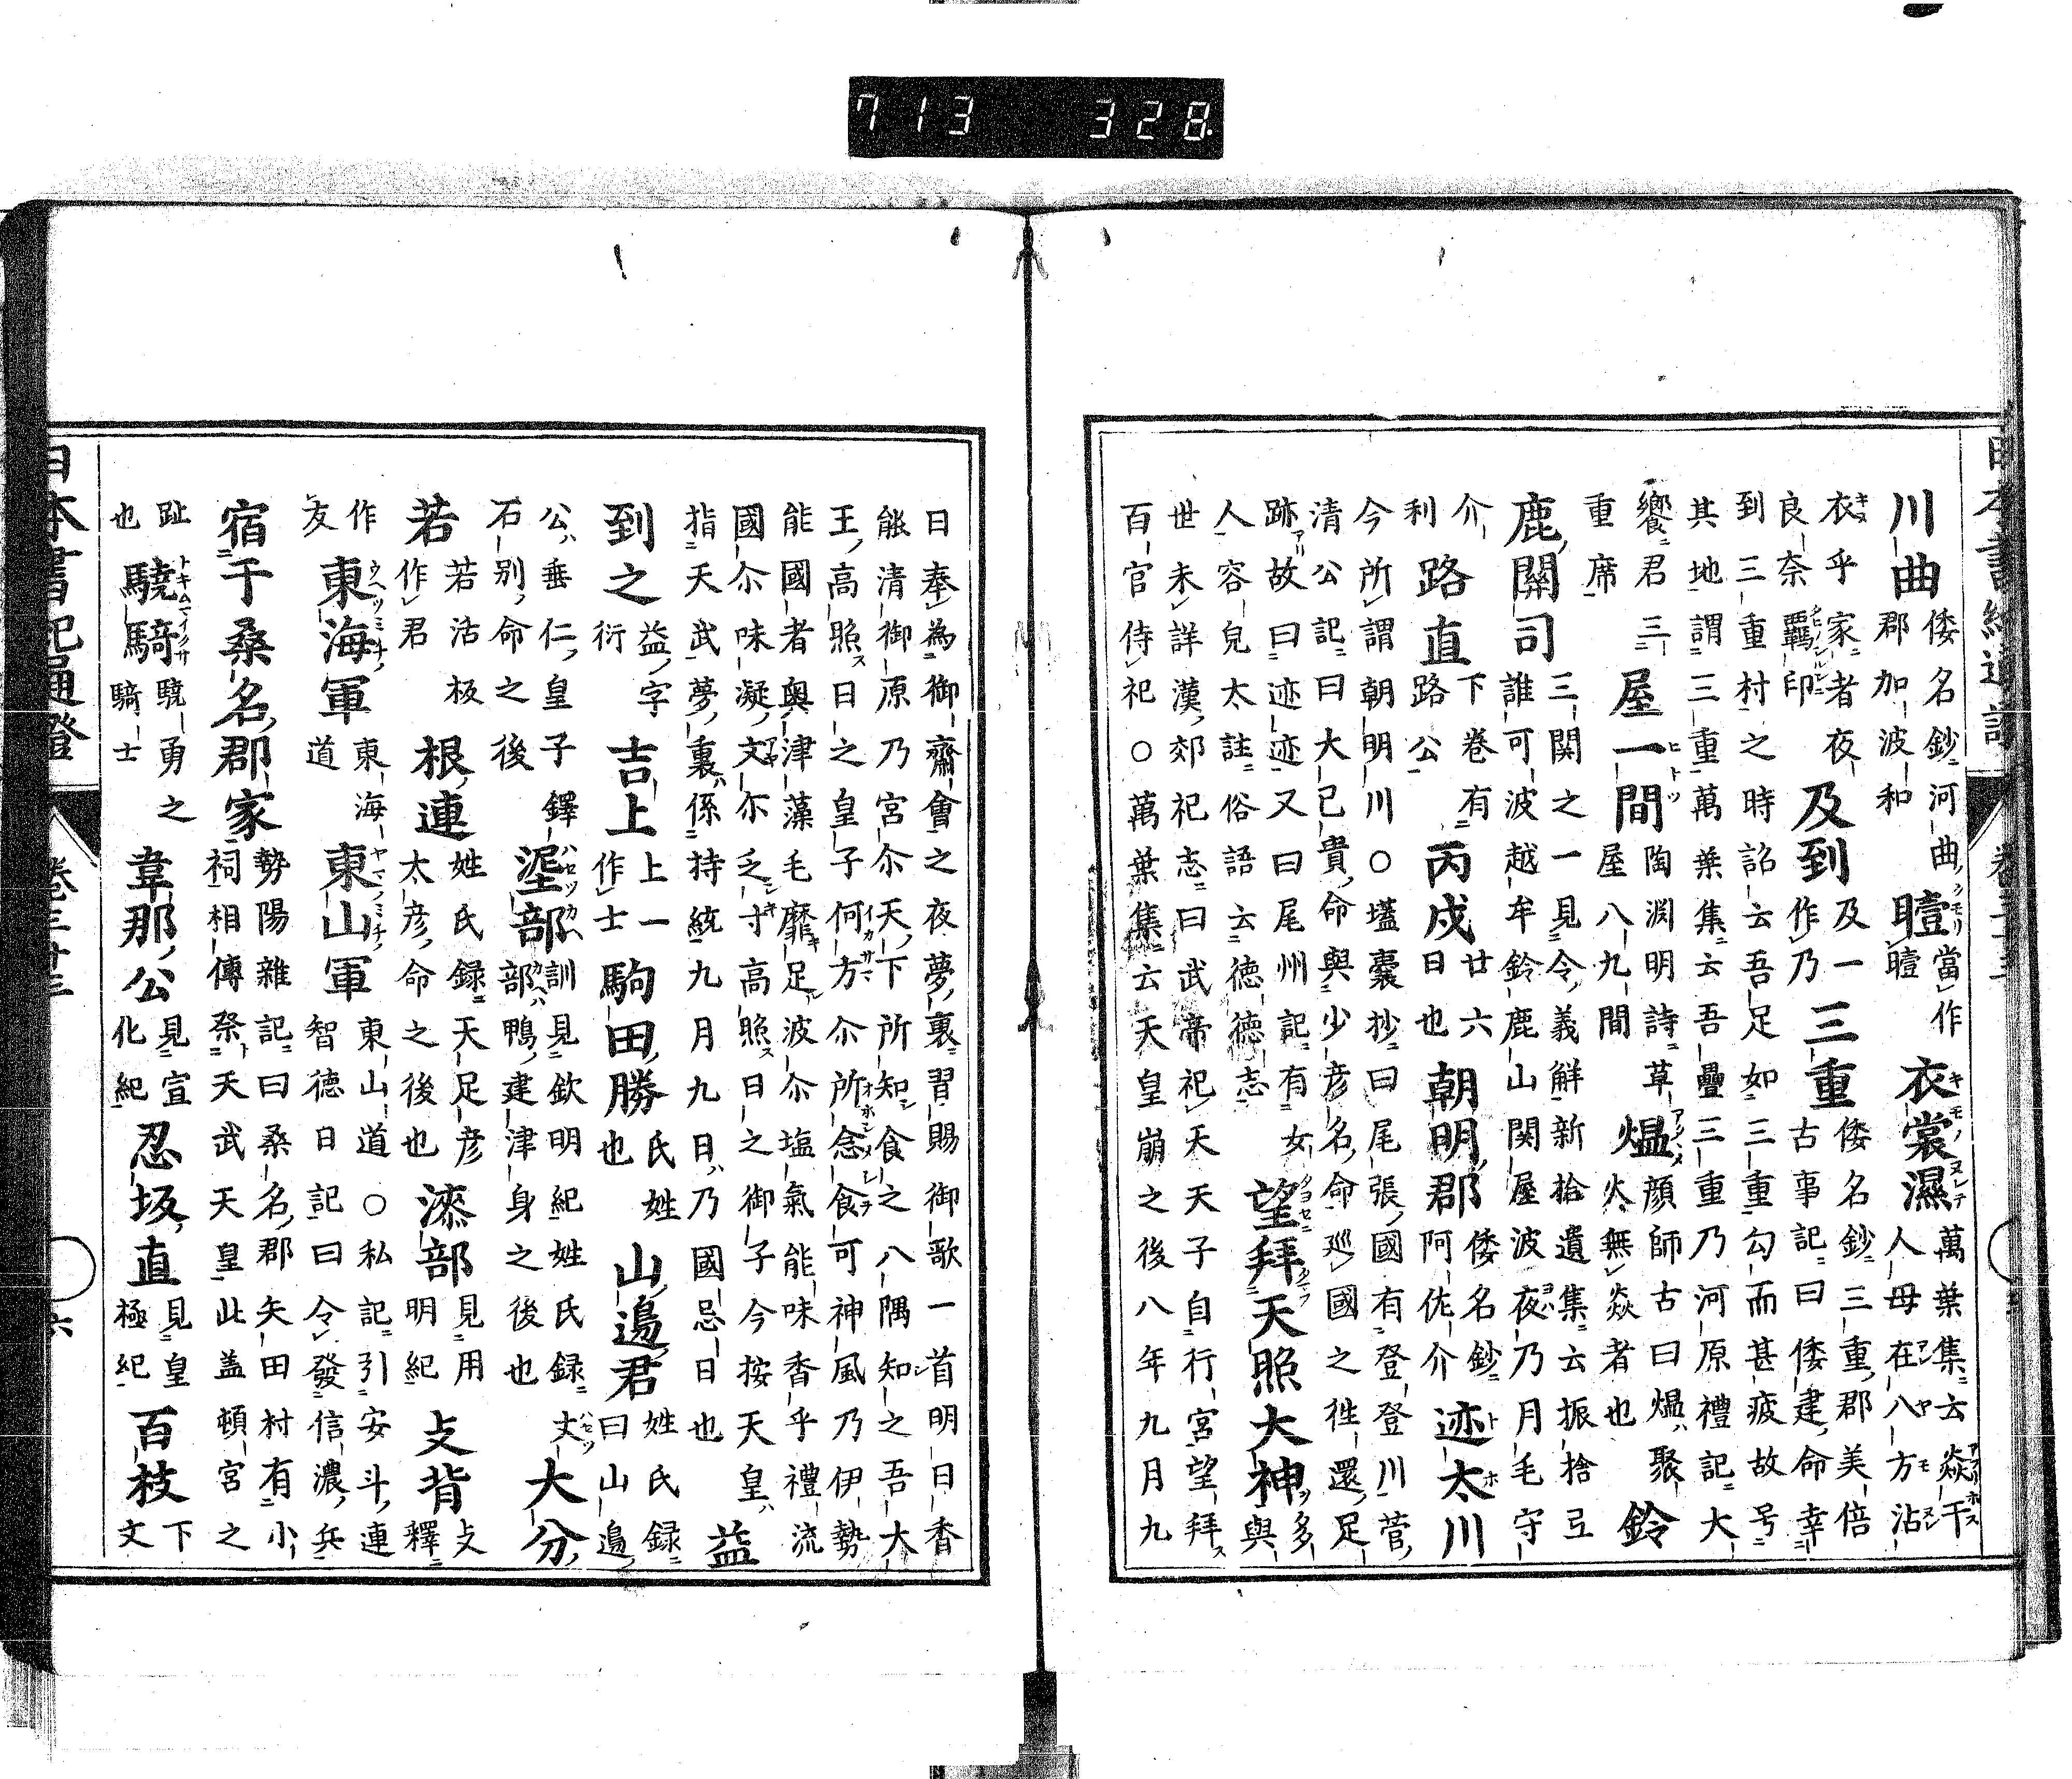 川曲 倭名鈔河曲郡加波和 曀 當作曀 衣裳濕 萬葉集云焱干人母在八方沾
衣乎家者夜良奈羈印 及到 及一作乃 三重 倭名鈔三重郡美倍古事記曰倭建命幸
到三重村之時詔云吾足如三重勾而甚疲故号
其地謂三重萬葉集云吾疊三重乃河原禮記大
饗君三重席 屋一間 陶淵明詩草屋八九間 熅 顔師古曰熅聚火無焱者也 鈴
鹿關司 三関之一見令義解新拾遺集云振捨弖誰可波越牟鈴鹿山関屋波夜乃月毛守
介利 路直 下巻有路公 丙戌 廿六日也 朝明郡 倭名鈔阿佐介 迹太川
今所謂朝明川○壒囊抄曰尾張國有登登川菅
清公記曰大己貴命與少彦名命廵國之徃還足
跡故曰迹迹又曰尾州記有女人容皃太註俗語云徳徳志 望拜天照大神 多與
世未詳漢郊祀志曰武帝祀天天子自行宮望拜
百官侍祀○萬葉集云天皇崩之後八年九月九
日奉為御齋會之夜夢裏習賜御歌一首明日香
能清御原乃宮尒天下所知食之八隅知之吾大
王高照日之皇子何方尒所念食可神風乃伊勢
能國者奥津藻毛靡足波尒塩氣能味香乎禮流
國尒味凝文尒乏寸高照日之御子今按天皇
指天武夢裏係持統九月九日乃國忌日也 益
到之 益字衍 吉上 上一作士 駒田勝 氏姓也 山邉君 姓氏録曰山邉
公垂仁皇子鐸石別命之後 埿部 訓見欽明紀姓氏録丈部鴨建津身之後也 大分
若 若沽板作君 根連 姓氏録天足彦太彦命之後也 漆部 見用明紀 攴背 攴釋
作友 東海軍 東海道 東山軍 東山道○私記引安斗連智德日記曰令發信濃兵
宿于桑名郡家 勢陽雜記曰桑名郡矢田村有小祠相傳祭天武天皇此盖頓宮之
趾也 驍騎 驍勇之騎士 韋那公 見宣化紀 忍坂直 見皇極紀 百枝 下文
日本書紀通證 卷三十三 六
713 328